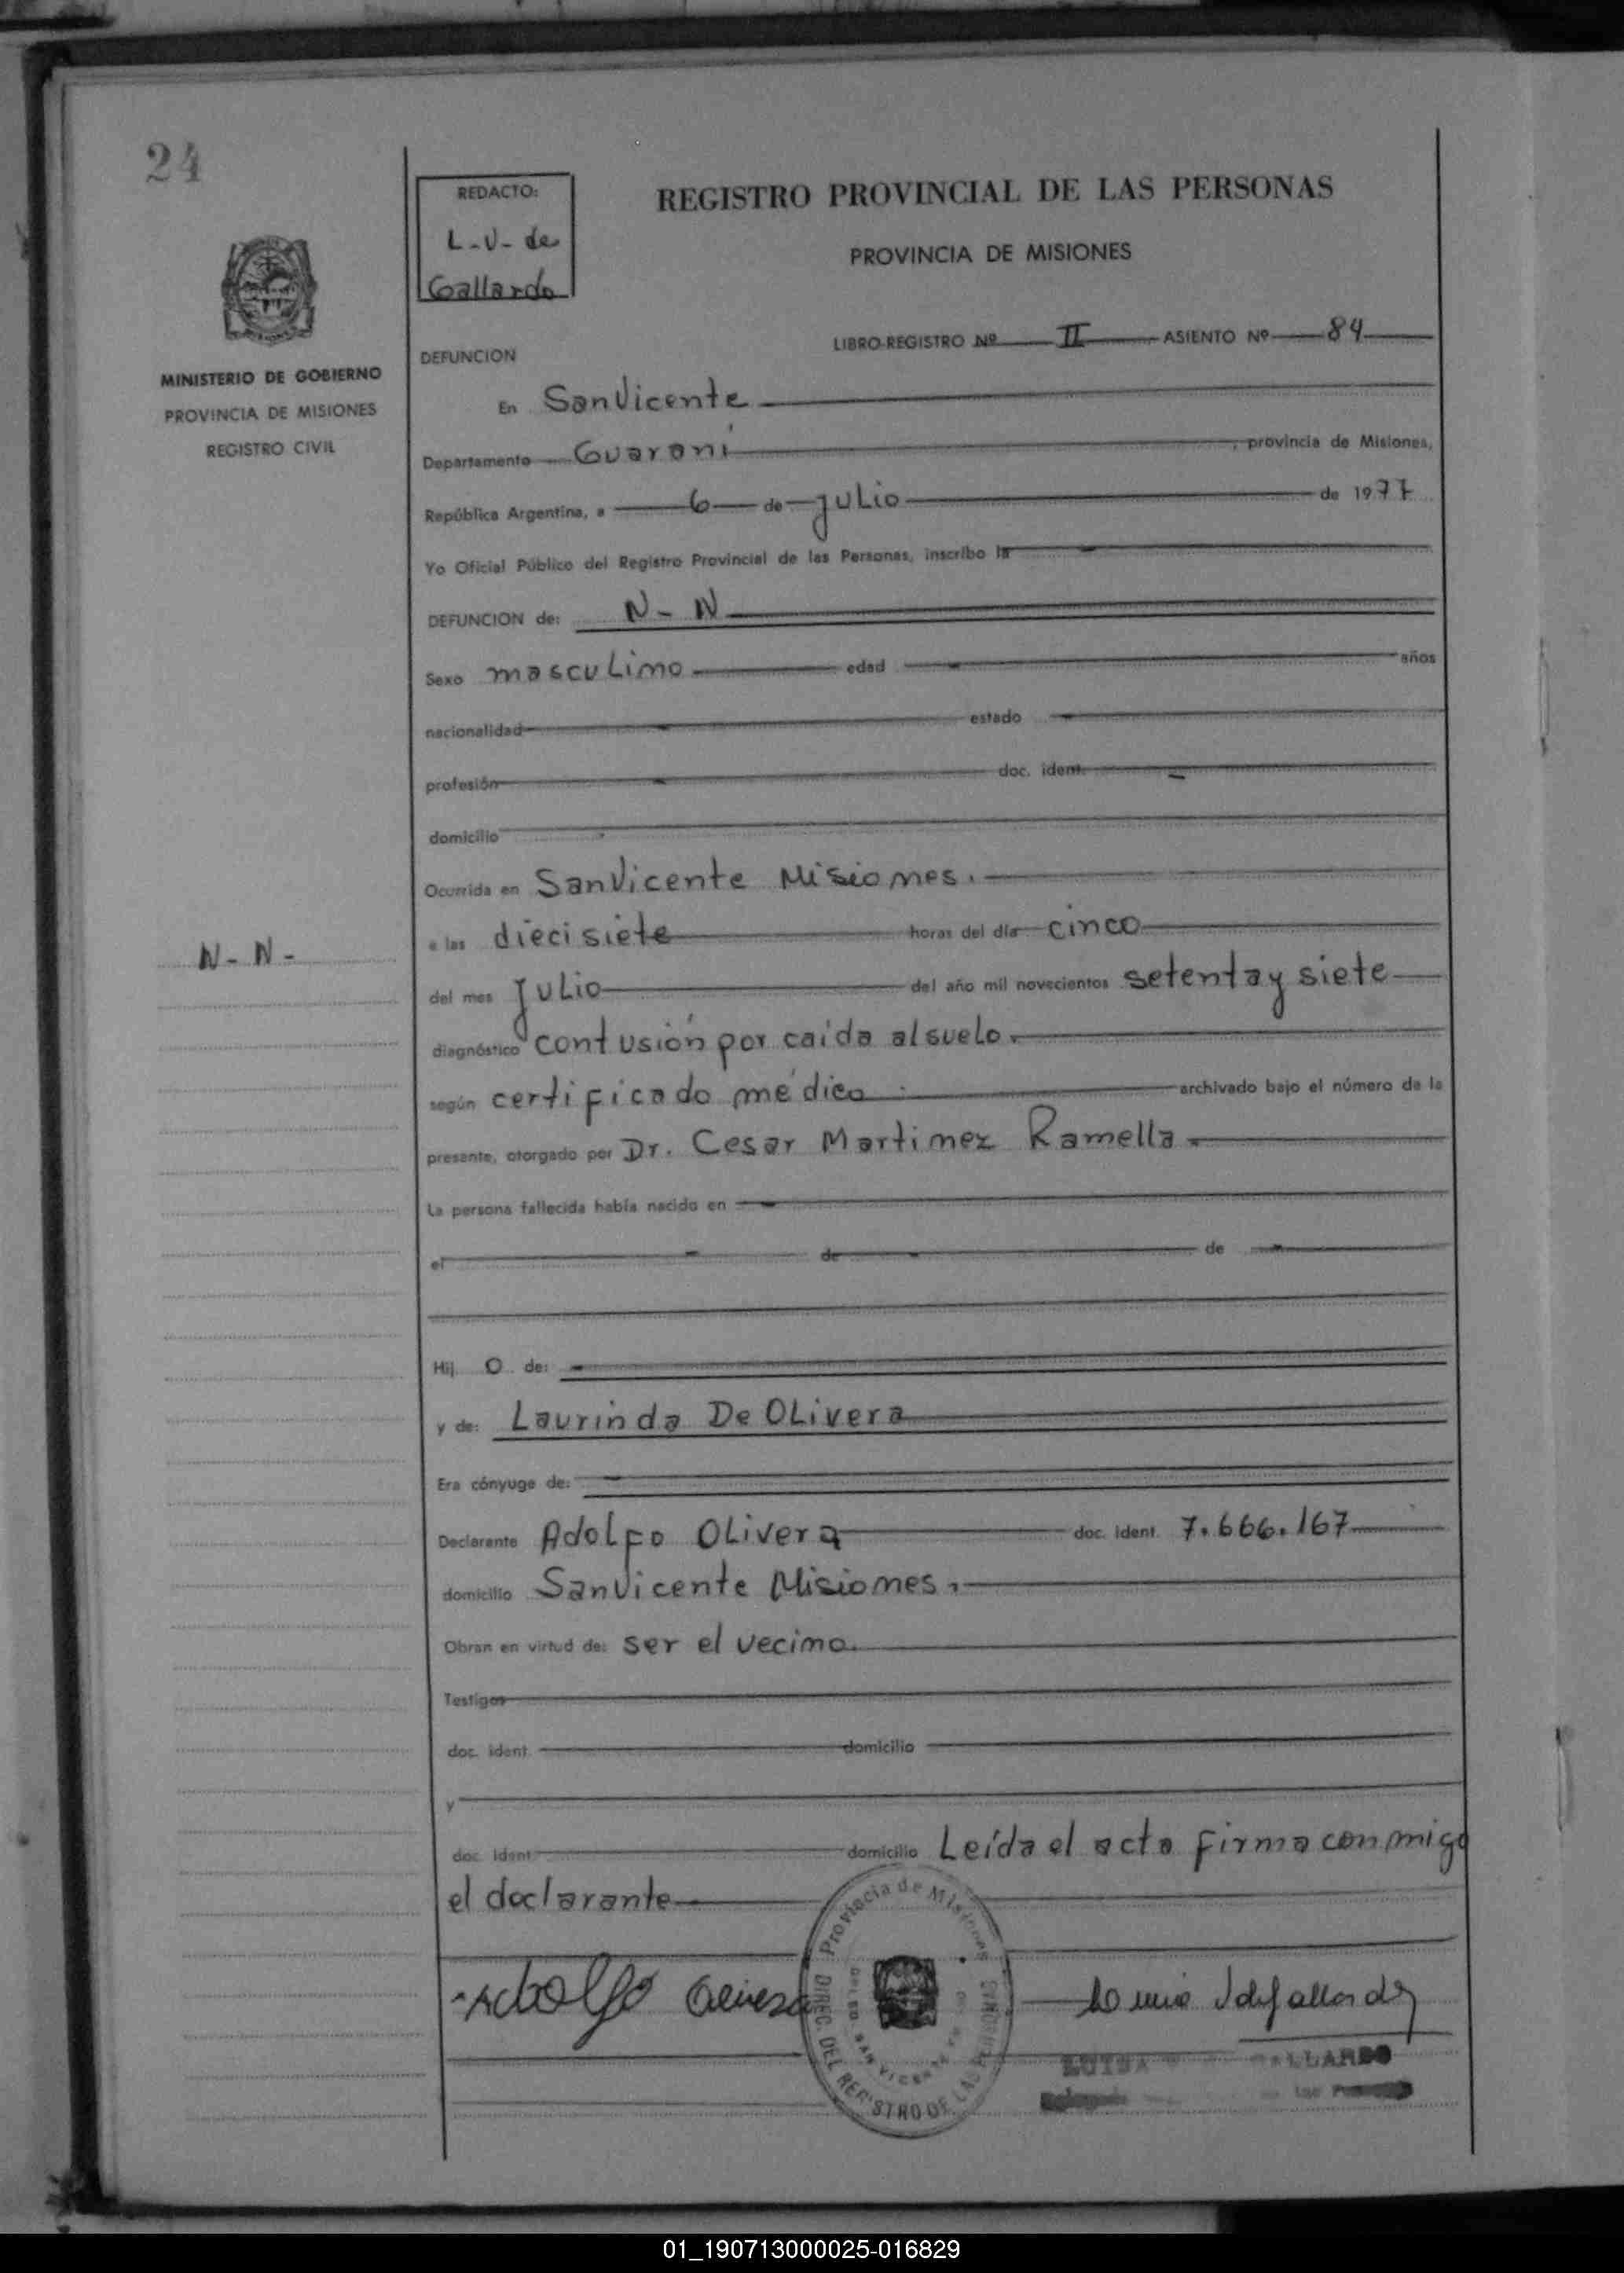 24
REDACTO:
L-V- de
Gallardo
REGISTRO PROVINCIAL DE LAS PERSONAS
PROVINCIA DE MISIONES
MINISTERIO DE GOBIERNO
PROVINCIA DE MISIONES
REGISTRO CIVIL
LIBRO-REGISTRO Nº II ASIENTO Nº 84
DEFUNCION
En San Vicente
Departamento Guarani , provincia de Misiones,
República Argentina, a 6 de julio de 1977
Yo Oficial Público del Registro Provincial de las Personas, inscribo la
DEFUNCION de: N-N
Sexo masculino edad años
nacionalidad estado
profesión doc. ident.
domicilio
Ocurrida en San Vicente Misiones.
a las diecisiete horas del día cinco
N-N-
del mes Julio del año mil novecientos setenta y siete
diagnóstico contusión por caída al suelo.
según certificado médico archivado bajo el número de la
presente, otorgado por Dr. Cesar Martinez Ramella.
La persona fallecida había nacido en
el de de
Hij o de:
y de: Laurinda De OLivera
Era cónyuge de:
Declarante Adolfo OLivera doc. ident. 7.666.167
domicilio San Vicente Misiones.
Obran en virtud de: ser el vecino.
Testigos
doc. ident. domicilio
y
doc. ident. domicilio Leída el acta firma conmigo
el declarante
Adolfo
Provincia de Misiones
DIREC. DEL REGISTRO DE LAS PERSONAS
SAN VICENTE
LUISA GALLARDO
01_190713000025-016829